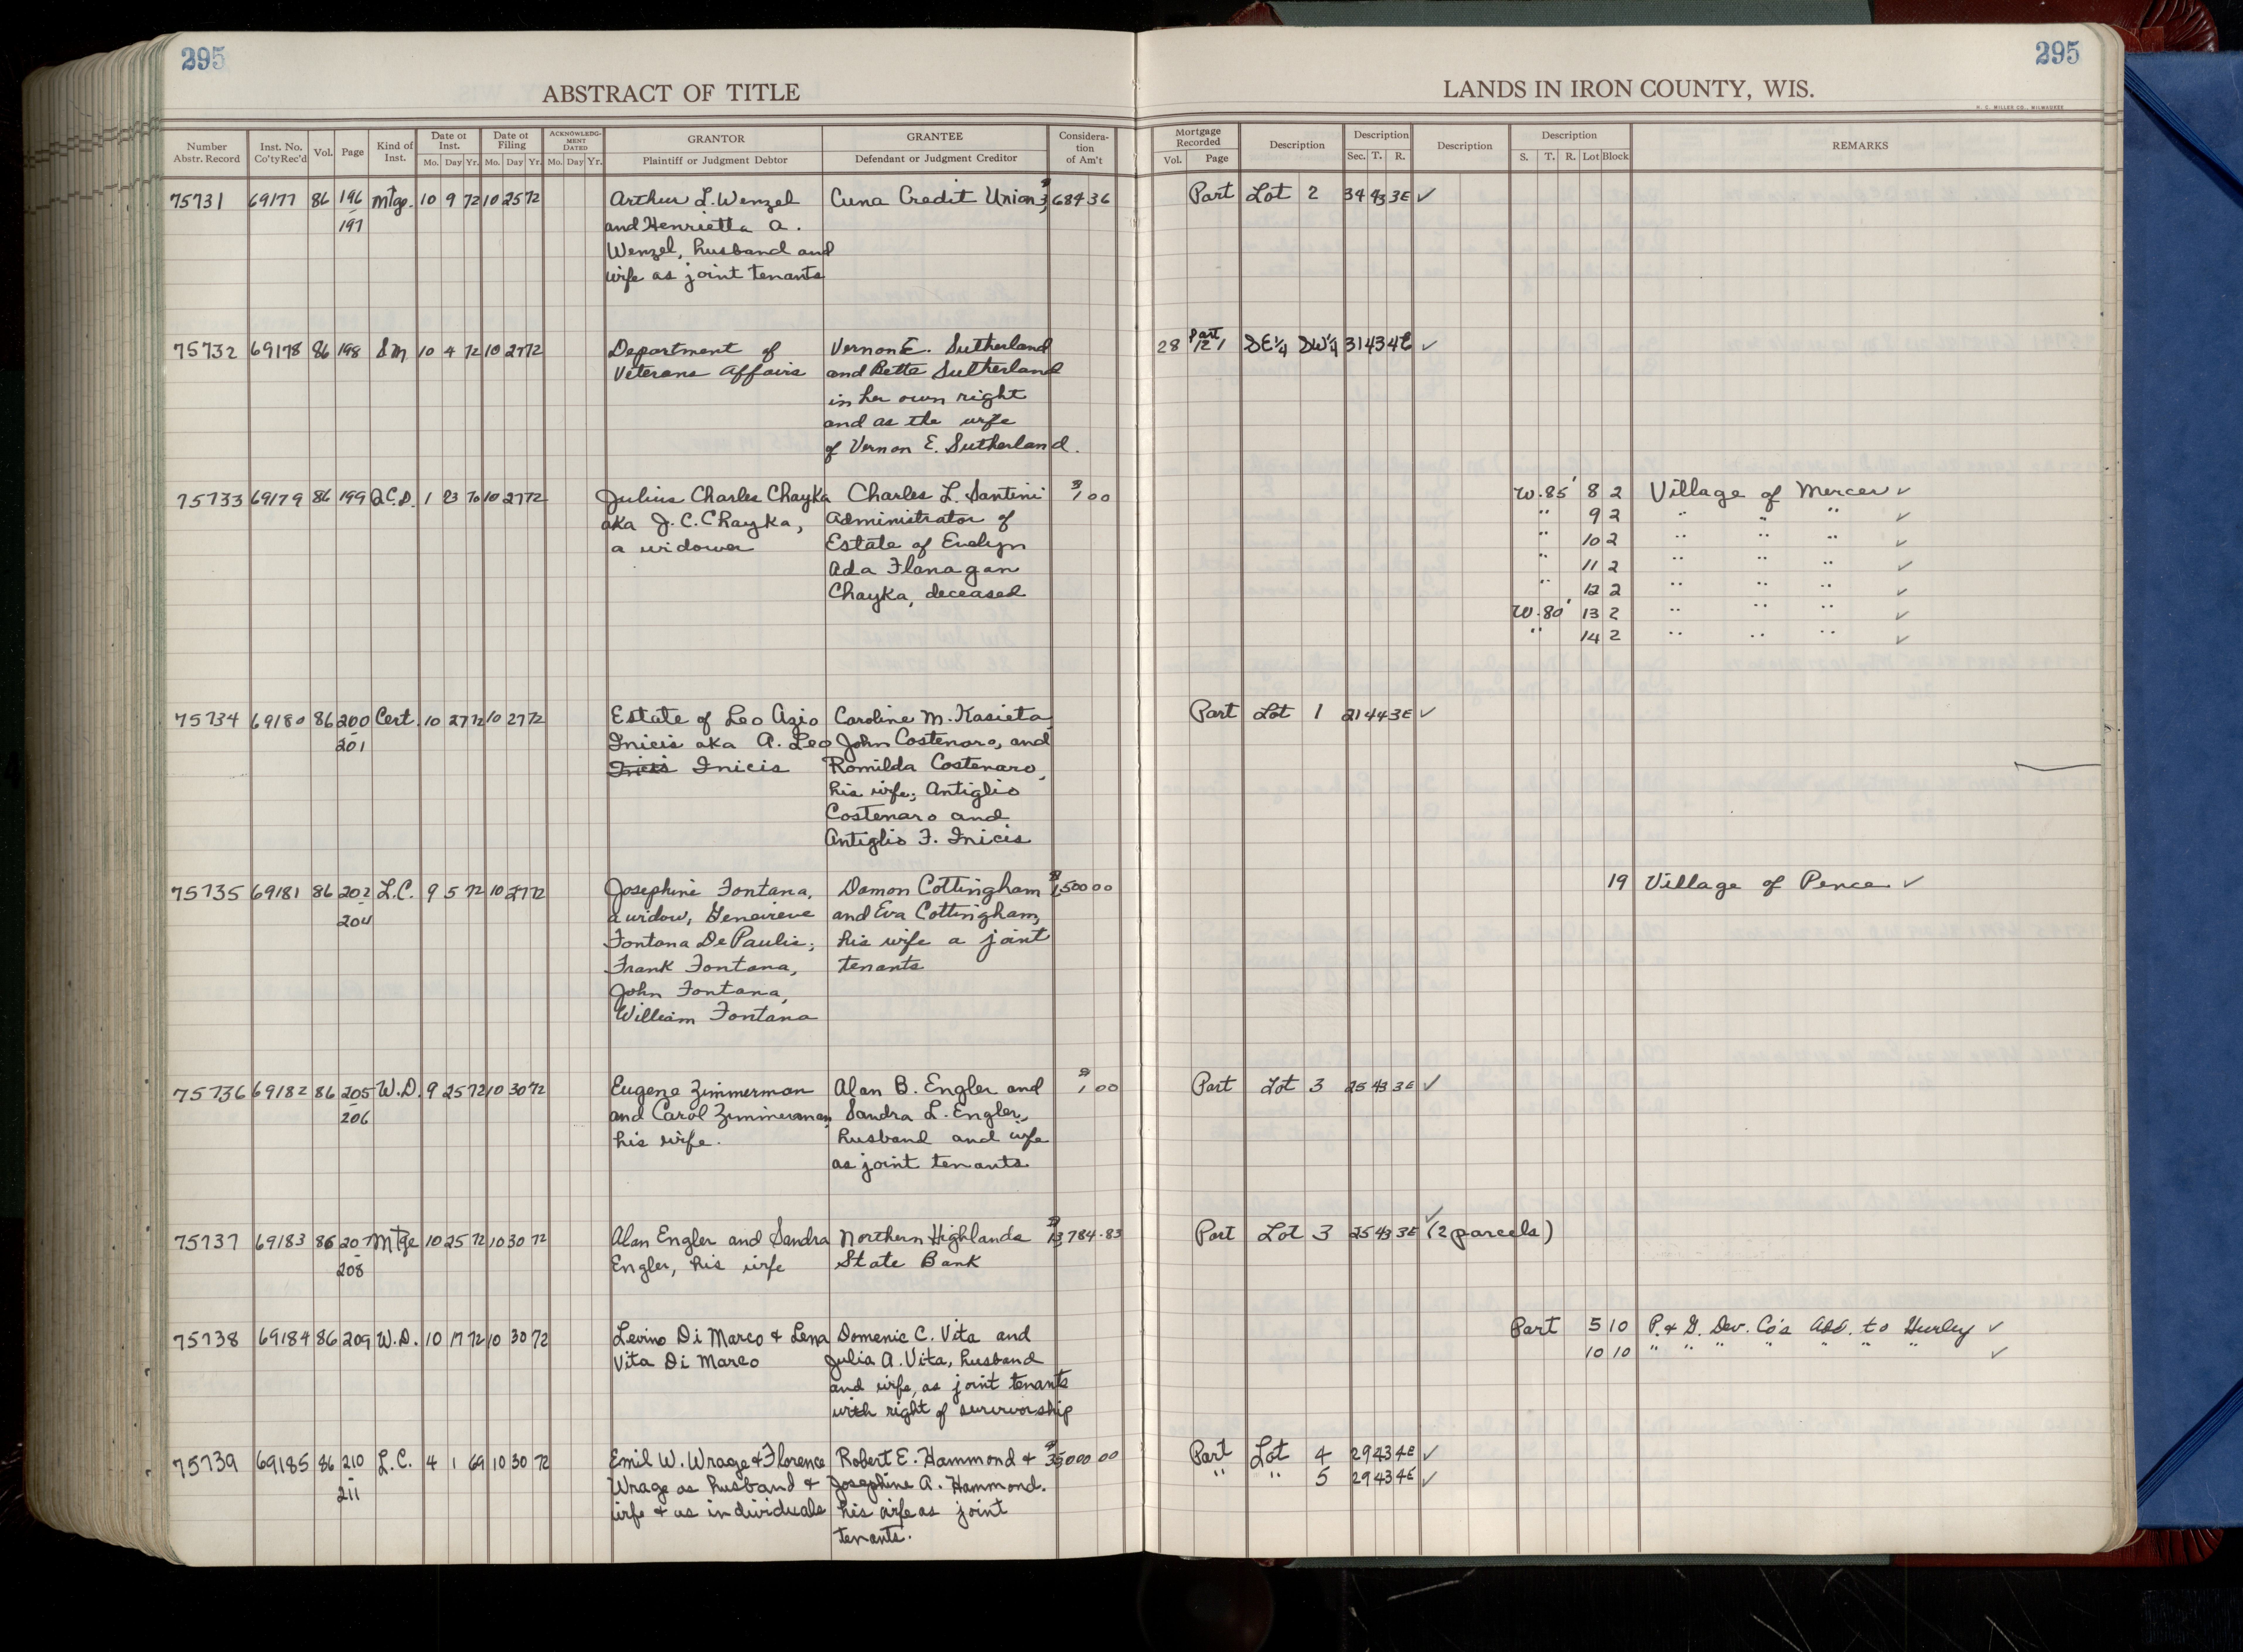 295
295
ABSTRACT OF TITLE
LANDS IN IRON COUNTY, WIS.
H. C. MILLER CO., MILWAUKEE
Number Abstr. Record
Inst. No. Co'tyRec'd
Vol.
Page
Kind of Inst.
Date of Inst.
Mo. Day Yr.
Date of Filing
Mo. Day Yr.
ACKNOWLEDGMENT DATED
Mo. Day Yr.
GRANTOR
Plaintiff or Judgment Debtor
GRANTEE
Defendant or Judgment Creditor
Consideration of Am't
Mortgage Recorded
Vol. Page
Description
Description
Sec. T. R.
Description
Description
S. T. R. Lot Block
REMARKS
75731 69177 86 196 Mtge. 10 9 72 10 25 72 Arthur L. Wenzel Cuna Credit Union $3,684 36 Part Lot 2 34 43 3E ✓
197 and Henrietta A.
Wenzel, husband and
wife as joint tenants
75732 69178 86 198 SM 10 4 72 10 27 72 Department of Vernon E. Sutherland 28 Part 121 SE¼ SW¼ 31 43 4E ✓
Veterans Affairs and Bette Sutherland
in her own right
and as the wife
of Vernon E. Sutherland.
75733 69179 86 199 Q.C.D. 1 23 70 10 27 72 Julius Charles Chayka Charles L. Santini $1 00 W. 85' 8 2 Village of Mercer ✓
aka J. C. Chayka, Administrator of " 9 2 " " " ✓
a widower Estate of Evelyn " 10 2 " " " ✓
Ada Flanagan " 11 2 " " " ✓
Chayka, deceased " 12 2 " " " ✓
W. 80' 13 2 " " " ✓
" 14 2 " " " ✓
75734 69180 86 200 Cert. 10 27 72 10 27 72 Estate of Leo Azio Caroline M. Kasieta Part Lot 1 21 44 3E ✓
201 Inicis aka A. Leo John Costenaro, and
Inicis Romilda Costenaro,
his wife; Antiglio
Costenaro and
Antiglio F. Inicis
75735 69181 86 202 L.C. 9 5 72 10 27 72 Josephine Fontana, Damon Cottingham $1,500 00 19 Village of Pence ✓
204 a widow, Genevieve and Eva Cottingham,
Fontana De Paulis; his wife a joint
Frank Fontana, tenants
John Fontana,
William Fontana
75736 69182 86 205 W.D. 9 25 72 10 30 72 Eugene Zimmerman Alan B. Engler and $1 00 Part Lot 3 25 43 3E ✓
206 and Carol Zimmerman, Sandra L. Engler,
his wife. husband and wife
as joint tenants
75737 69183 86 207 Mtge 10 25 72 10 30 72 Alan Engler and Sandra Northern Highlands $13,784.83 Part Lot 3 25 43 3E ✓ (2 parcels)
208 Engler, his wife State Bank
75738 69184 86 209 W.D. 10 17 72 10 30 72 Levino Di Marco & Lena Domenic C. Vita and Part 5 10 P. & G. Dev. Co's Add. to Hurley ✓
Vita Di Marco Julia A. Vita, husband 10 10 " " " " " " " ✓
and wife, as joint tenants
with right of survivorship
75739 69185 86 210 L.C. 4 1 69 10 30 72 Emil W. Wrage & Florence Robert E. Hammond & $35000 00 Part Lot 4 29 43 4E ✓
211 Wrage as husband & Josephine A. Hammond. " " 5 29 43 4E ✓
wife & as individuals his wife as joint
tenants.